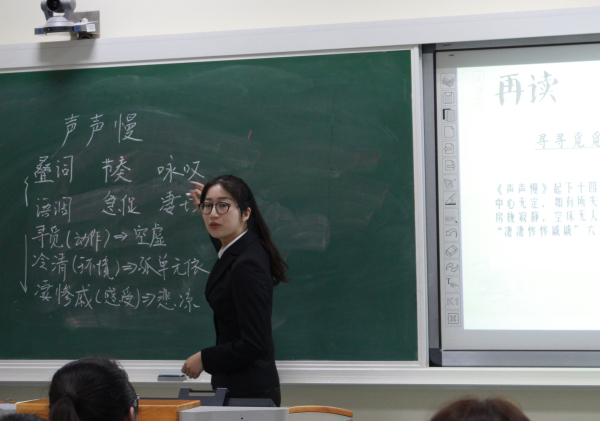 声声慢
叠词 节奏 咏叹
语调 急促 凄
寻觅(动作)⇒空虚
冷清(环境)⇒孤单无依
凄惨戚(感受)⇒悲凉
再读
寻寻觅觅
《声声慢》起下十四
中心无定，如有所失
房栊寂静，空床无人
“凄凄惨惨戚戚”六